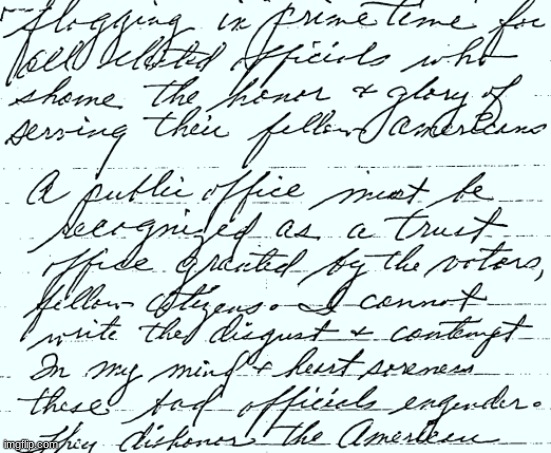 flogging in prime time for
all elected officials who
shame the honor & glory of
serving their fellow Americans
A public office must be
recognized as a trust
office granted by the voters,
fellow citizens. I cannot
write the disgust & contempt
In my mind & heart soreness
these bad officials engender.
They dishonor the American
imgflip.com